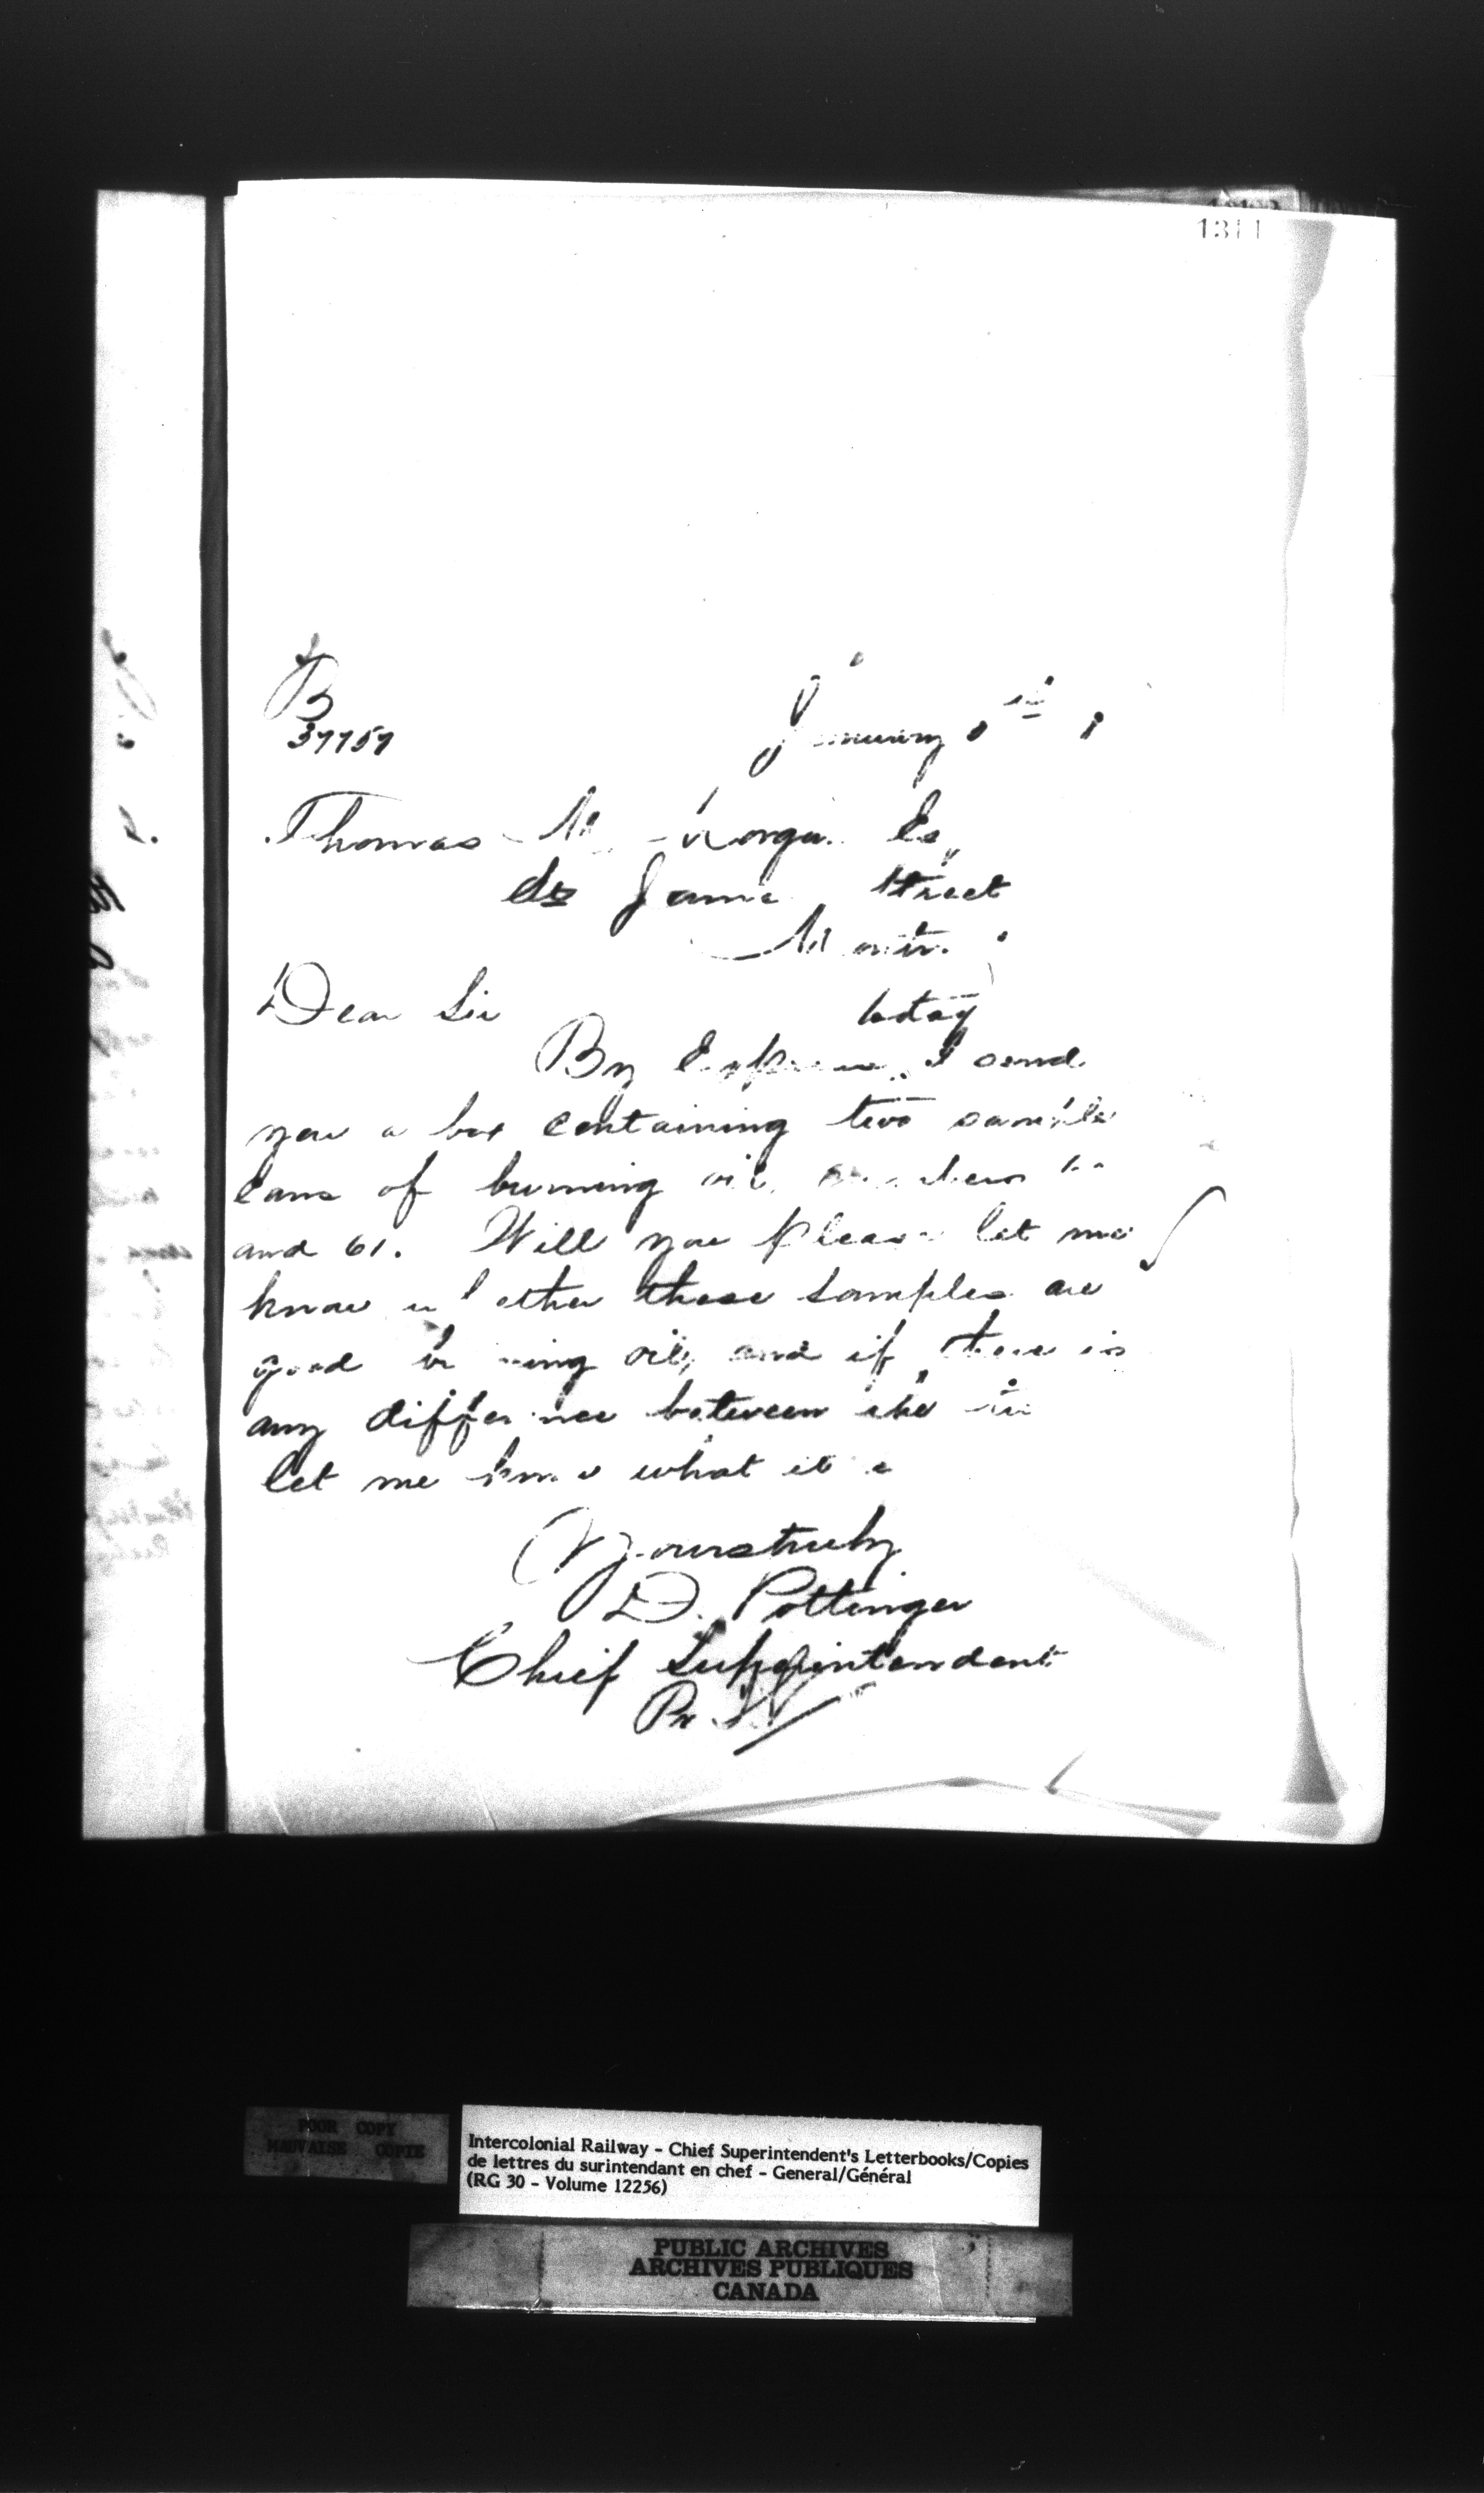 1311
B
37757
January
Thomas M
St James Street
Dear Sir
today
By Express I send
you a box containing two sample
cans of burning oil,
and 61. Will you please let me
know whether these samples are
good burning oil, and if there is
any difference between the
let me know what it is
Yours truly
D. Pottinger
Chief Superintendent
Pr
POOR COPY
MAUVAISE COPIE
Intercolonial Railway - Chief Superintendent's Letterbooks/Copies
de lettres du surintendant en chef - General/Général
(RG 30 - Volume 12256)
PUBLIC ARCHIVES
ARCHIVES PUBLIQUES
CANADA